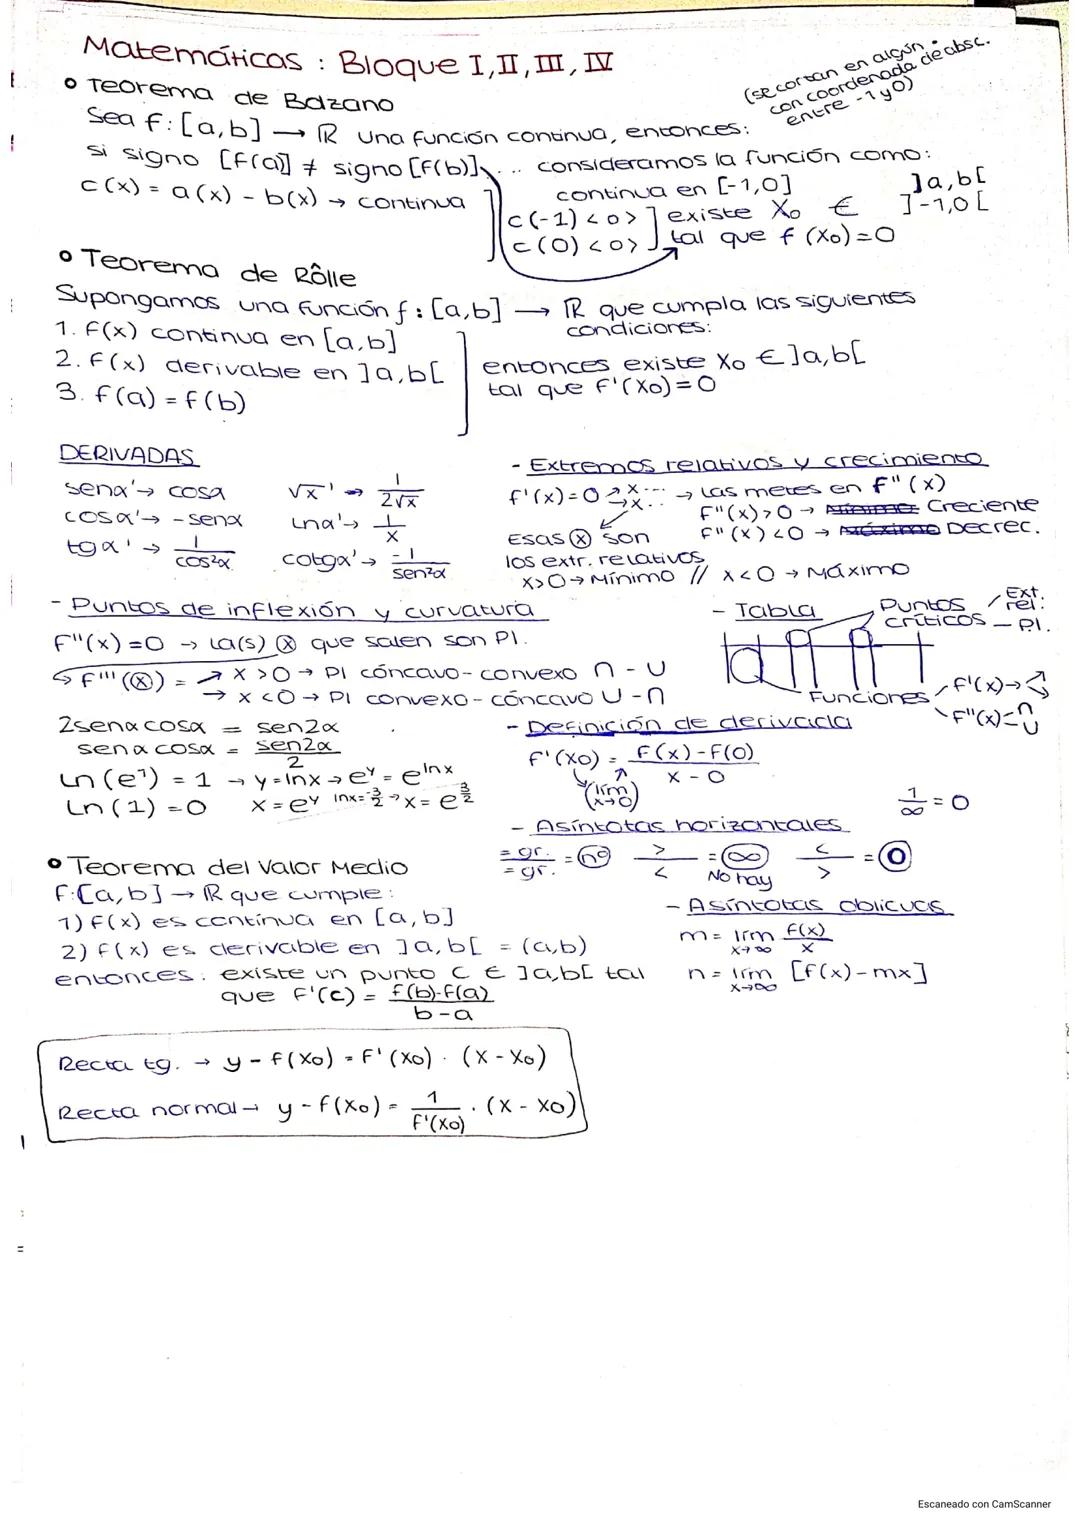 Matemáticas : Bloque I, II, III, IV
(se cortan en algún .
con coordenada de absc.
entre -1 y 0)
• Teorema de Bolzano
Sea f: [a,b] → ℝ una función continua, entonces:
si signo [f(a)] ≠ signo [f(b)] ... consideramos la función como:
c(x) = a(x) - b(x) → continua
continua en [-1,0]
c(-1) < 0 > ] existe x₀ ∈ ]a,b[
]-1,0[
c(0) < 0 > ] tal que f(x₀) = 0
• Teorema de Rôlle
Supongamos una función f: [a,b] → ℝ que cumpla las siguientes
condiciones:
1. f(x) continua en [a,b]
2. f(x) derivable en ]a,b[
3. f(a) = f(b)
entonces existe x₀ ∈ ]a,b[
tal que f'(x₀) = 0
DERIVADAS
senα' → cosα
√x' → 1/2√x
cosα' → -senα
Lnα' → 1/x
tgα' → 1/cos²α
cotgα' → -1/sen²α
- Extremos relativos y crecimiento
f'(x) = 0 ↗ x... → x... → Las metes en f''(x)
f''(x) > 0 → Mínimo: Creciente
f''(x) < 0 → Máximo Decrec.
Esas ⓧ son
los extr. relativos
x>0 → Mínimo // x<0 → Máximo
- Puntos de inflexión y curvatura
f''(x) = 0 → La(s) ⓧ que salen son PI.
↳ f'''(ⓧ) = ↗ x > 0 → PI cóncavo-convexo ∩ - ∪
→ x < 0 → PI convexo-cóncavo ∪ - ∩
- Tabla
Puntos críticos
Ext. rel.
— PI.
Funciones
f'(x) →
f''(x) = ∩ ∪
2senα cosα = sen2α
senα cosα = sen2α/2
Ln(e¹) = 1 → y = lnx → e^y = e^lnx
Ln(1) = 0 x = e^y lnx = 3/2 → x = e^3/2
- Definición de derivada
f'(x₀) = f(x) - f(0) / x - 0
(lím x→0)
1/∞ = 0
- Asíntotas horizontales
= gr. / = gr. = nº
> / < = ∞ No hay
< / > = 0
• Teorema del Valor Medio
f: [a,b] → ℝ que cumple:
1) f(x) es contínua en [a,b]
2) f(x) es derivable en ]a,b[ = (a,b)
entonces: existe un punto c ∈ ]a,b[ tal
que f'(c) = f(b)-f(a) / b-a
- Asíntotas oblicuas
m = lím x→∞ f(x)/x
n = lím x→∞ [f(x) - mx]
Recta tg. → y - f(x₀) = f'(x₀) · (x - x₀)
Recta normal → y - f(x₀) = 1/f'(x₀) · (x - x₀)
Escaneado con CamScanner